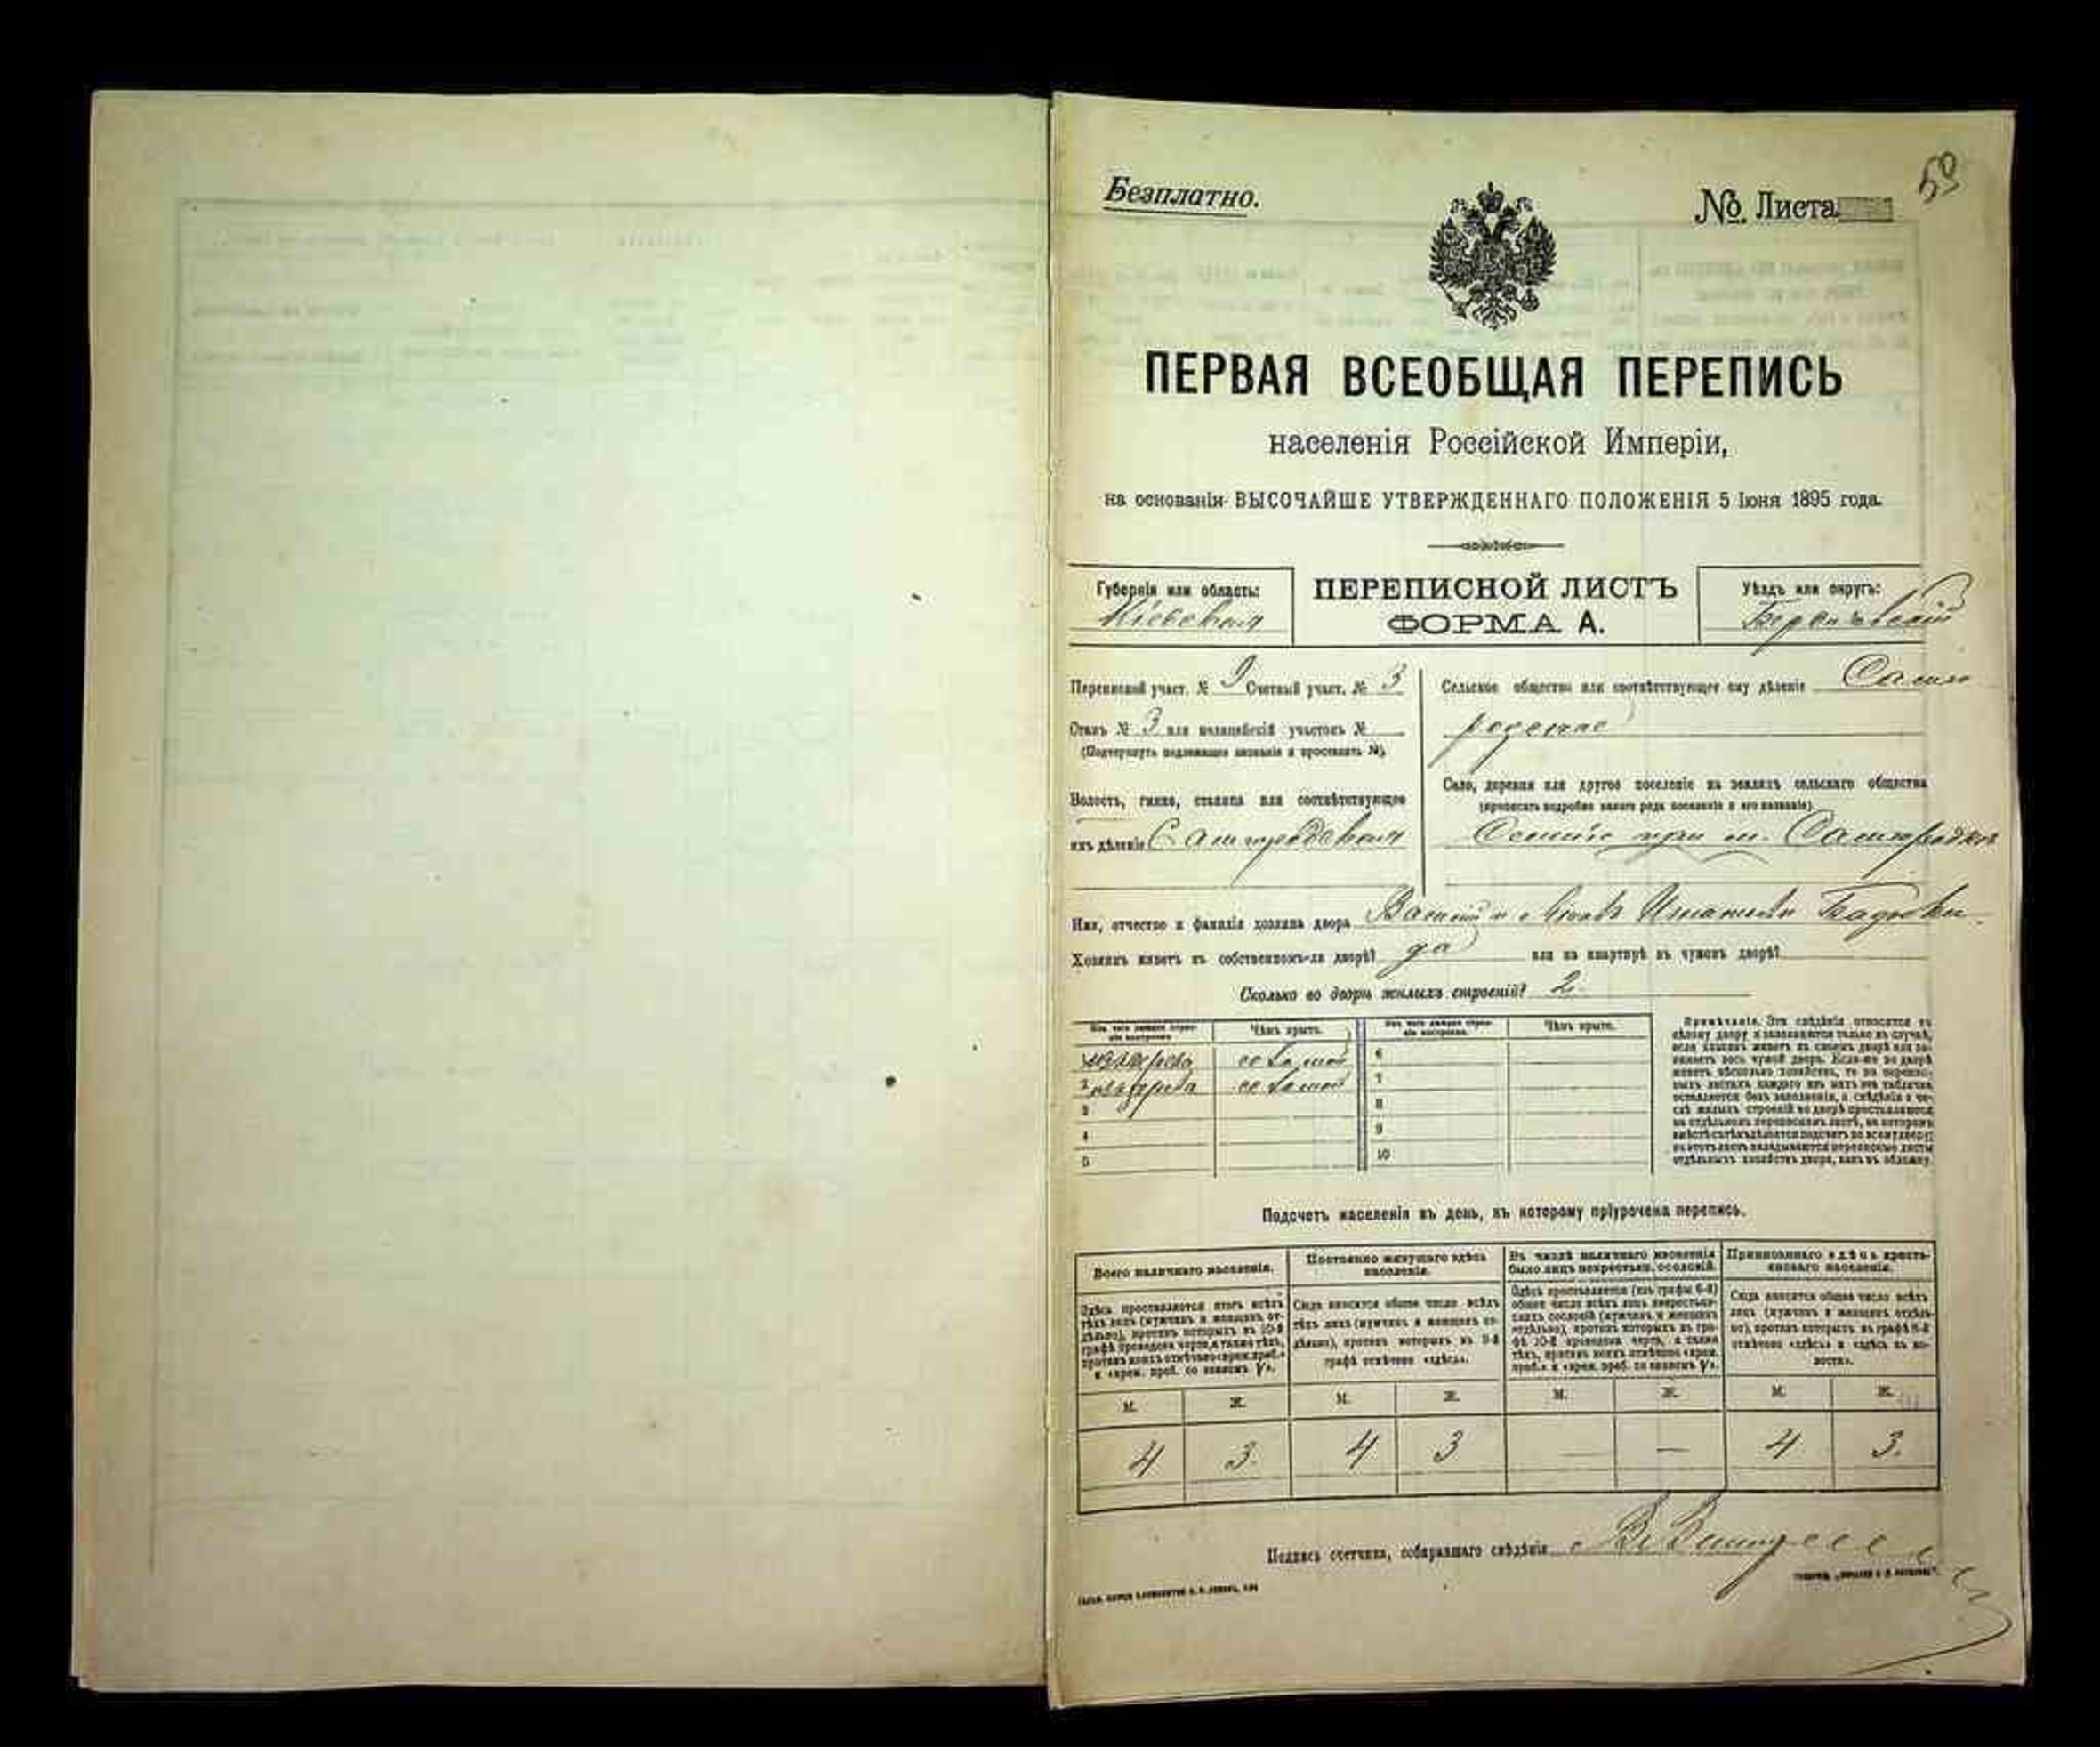 59
Безплатно.
№ Листа
ПЕРВАЯ ВСЕОБЩАЯ ПЕРЕПИСЬ
населенія Россійской Имперіи,
на основаніи ВЫСОЧАЙШЕ УТВЕРЖДЕННАГО ПОЛОЖЕНІЯ 5 Іюня 1895 года.
Губернія или область:
Кіевская
ПЕРЕПИСНОЙ ЛИСТЪ
ФОРМА А.
Уѣздъ или округъ:
Бердичевскій
Переписной участ. № 9 Счетный участ. № 3
Станъ № 3 или полицейскій участокъ №
(Подчеркнуть подлежащее названіе и проставить №).
Волость, гмина, станица или соотвѣтствующее
имъ дѣленіе Самгродская
Сельское общество или соотвѣтствующее ему дѣленіе
Село, деревня или другое поселеніе на земляхъ сельскаго общества
(прописать подробно какого рода поселеніе и его названіе)
при м.
Имя, отчество и фамилія хозяина двора
Хозяинъ живетъ въ собственномъ-ли дворѣ? да или на квартирѣ въ чужомъ дворѣ?
Сколько во дворѣ жилыхъ строеній? 2.
Изъ чего жилыя строенія построены.
Чѣмъ крыто.
Изъ чего жилыя строенія построены.
Чѣмъ крыто.
изъ дерева соломой 6
2 изъ дерева соломой 7
3 8
4 9
5 10
Примѣчаніе. Эти свѣдѣнія относятся къ
цѣлому двору и заполняются только въ случаѣ,
если хозяинъ живетъ въ своемъ дворѣ или за-
нимаетъ весь чужой дворъ. Если-же во дворѣ
живетъ нѣсколько хозяйствъ, то на перепис-
ныхъ листахъ каждаго изъ нихъ эта табличка
оставляется безъ заполненія, а свѣдѣнія о чи-
слѣ жилыхъ строеній во дворѣ проставляются
на отдѣльномъ переписномъ листѣ, на которомъ
вмѣстѣ съ тѣмъ дѣлается подсчетъ по всему двору;
въ этотъ листъ вкладываются переписные листы
отдѣльныхъ хозяйствъ двора, какъ въ обложку.
Подсчетъ населенія въ день, къ которому пріурочена перепись.
Всего наличнаго населенія.
Постоянно живущаго здѣсь
населенія.
Въ числѣ наличнаго населенія
было лицъ некрестьян. сословій.
Приписаннаго здѣсь кресть-
янскаго населенія.
Здѣсь проставляются итогъ всѣхъ
тѣхъ лицъ (мужчинъ и женщинъ от-
дѣльно), противъ которыхъ въ 10-й
графѣ проведена черта, а также тѣхъ,
противъ коихъ отмѣчено «врем. преб.»
и «врем. преб. со знакомъ V».
Сюда вносится общее число всѣхъ
тѣхъ лицъ (мужчинъ и женщинъ от-
дѣльно), противъ которыхъ въ 9-й
графѣ отмѣчено «здѣсь».
Здѣсь проставляется (изъ графы 6-й)
общее число всѣхъ лицъ некрестьян-
скихъ сословій (мужчинъ и женщинъ
отдѣльно), противъ которыхъ въ гра-
фѣ 10-й проведена черта, а также
тѣхъ, противъ коихъ отмѣчено «врем.
преб.» и «врем. преб. со знакомъ V».
Сюда вносится общее число всѣхъ
лицъ (мужчинъ и женщинъ отдѣль-
но), противъ которыхъ въ графѣ 8-й
отмѣчено «здѣсь» и «здѣсь въ во-
лости».
М. Ж. М. Ж. М. Ж. М. Ж.
4 3. 4 3 — — 4 3.
Подпись счетчика, собиравшаго свѣдѣнія